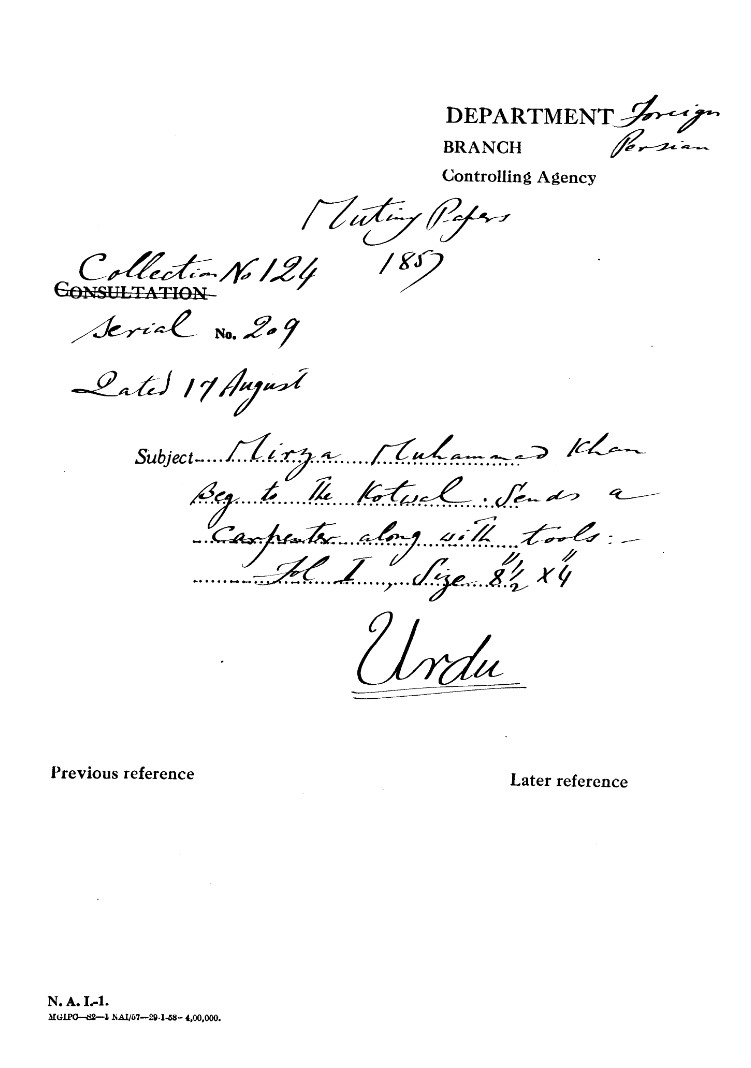 DEPARTMENT Foreign
BRANCH Persian
Controlling Agency
Mutiny Papers
1857
Collection No 124
CONSULTATION
Serial No. 209
Dated 17 August
Subject Mirza Muhammad Khan
Beg to the Kotwal. Sends a
Carpenter along with tools:-
Fol I, Size 8½" x 4"
Urdu
Previous reference
Later reference
N. A. I.-1.
MGIPC—82—1 NAI/57—29-1-58—4,00,000.